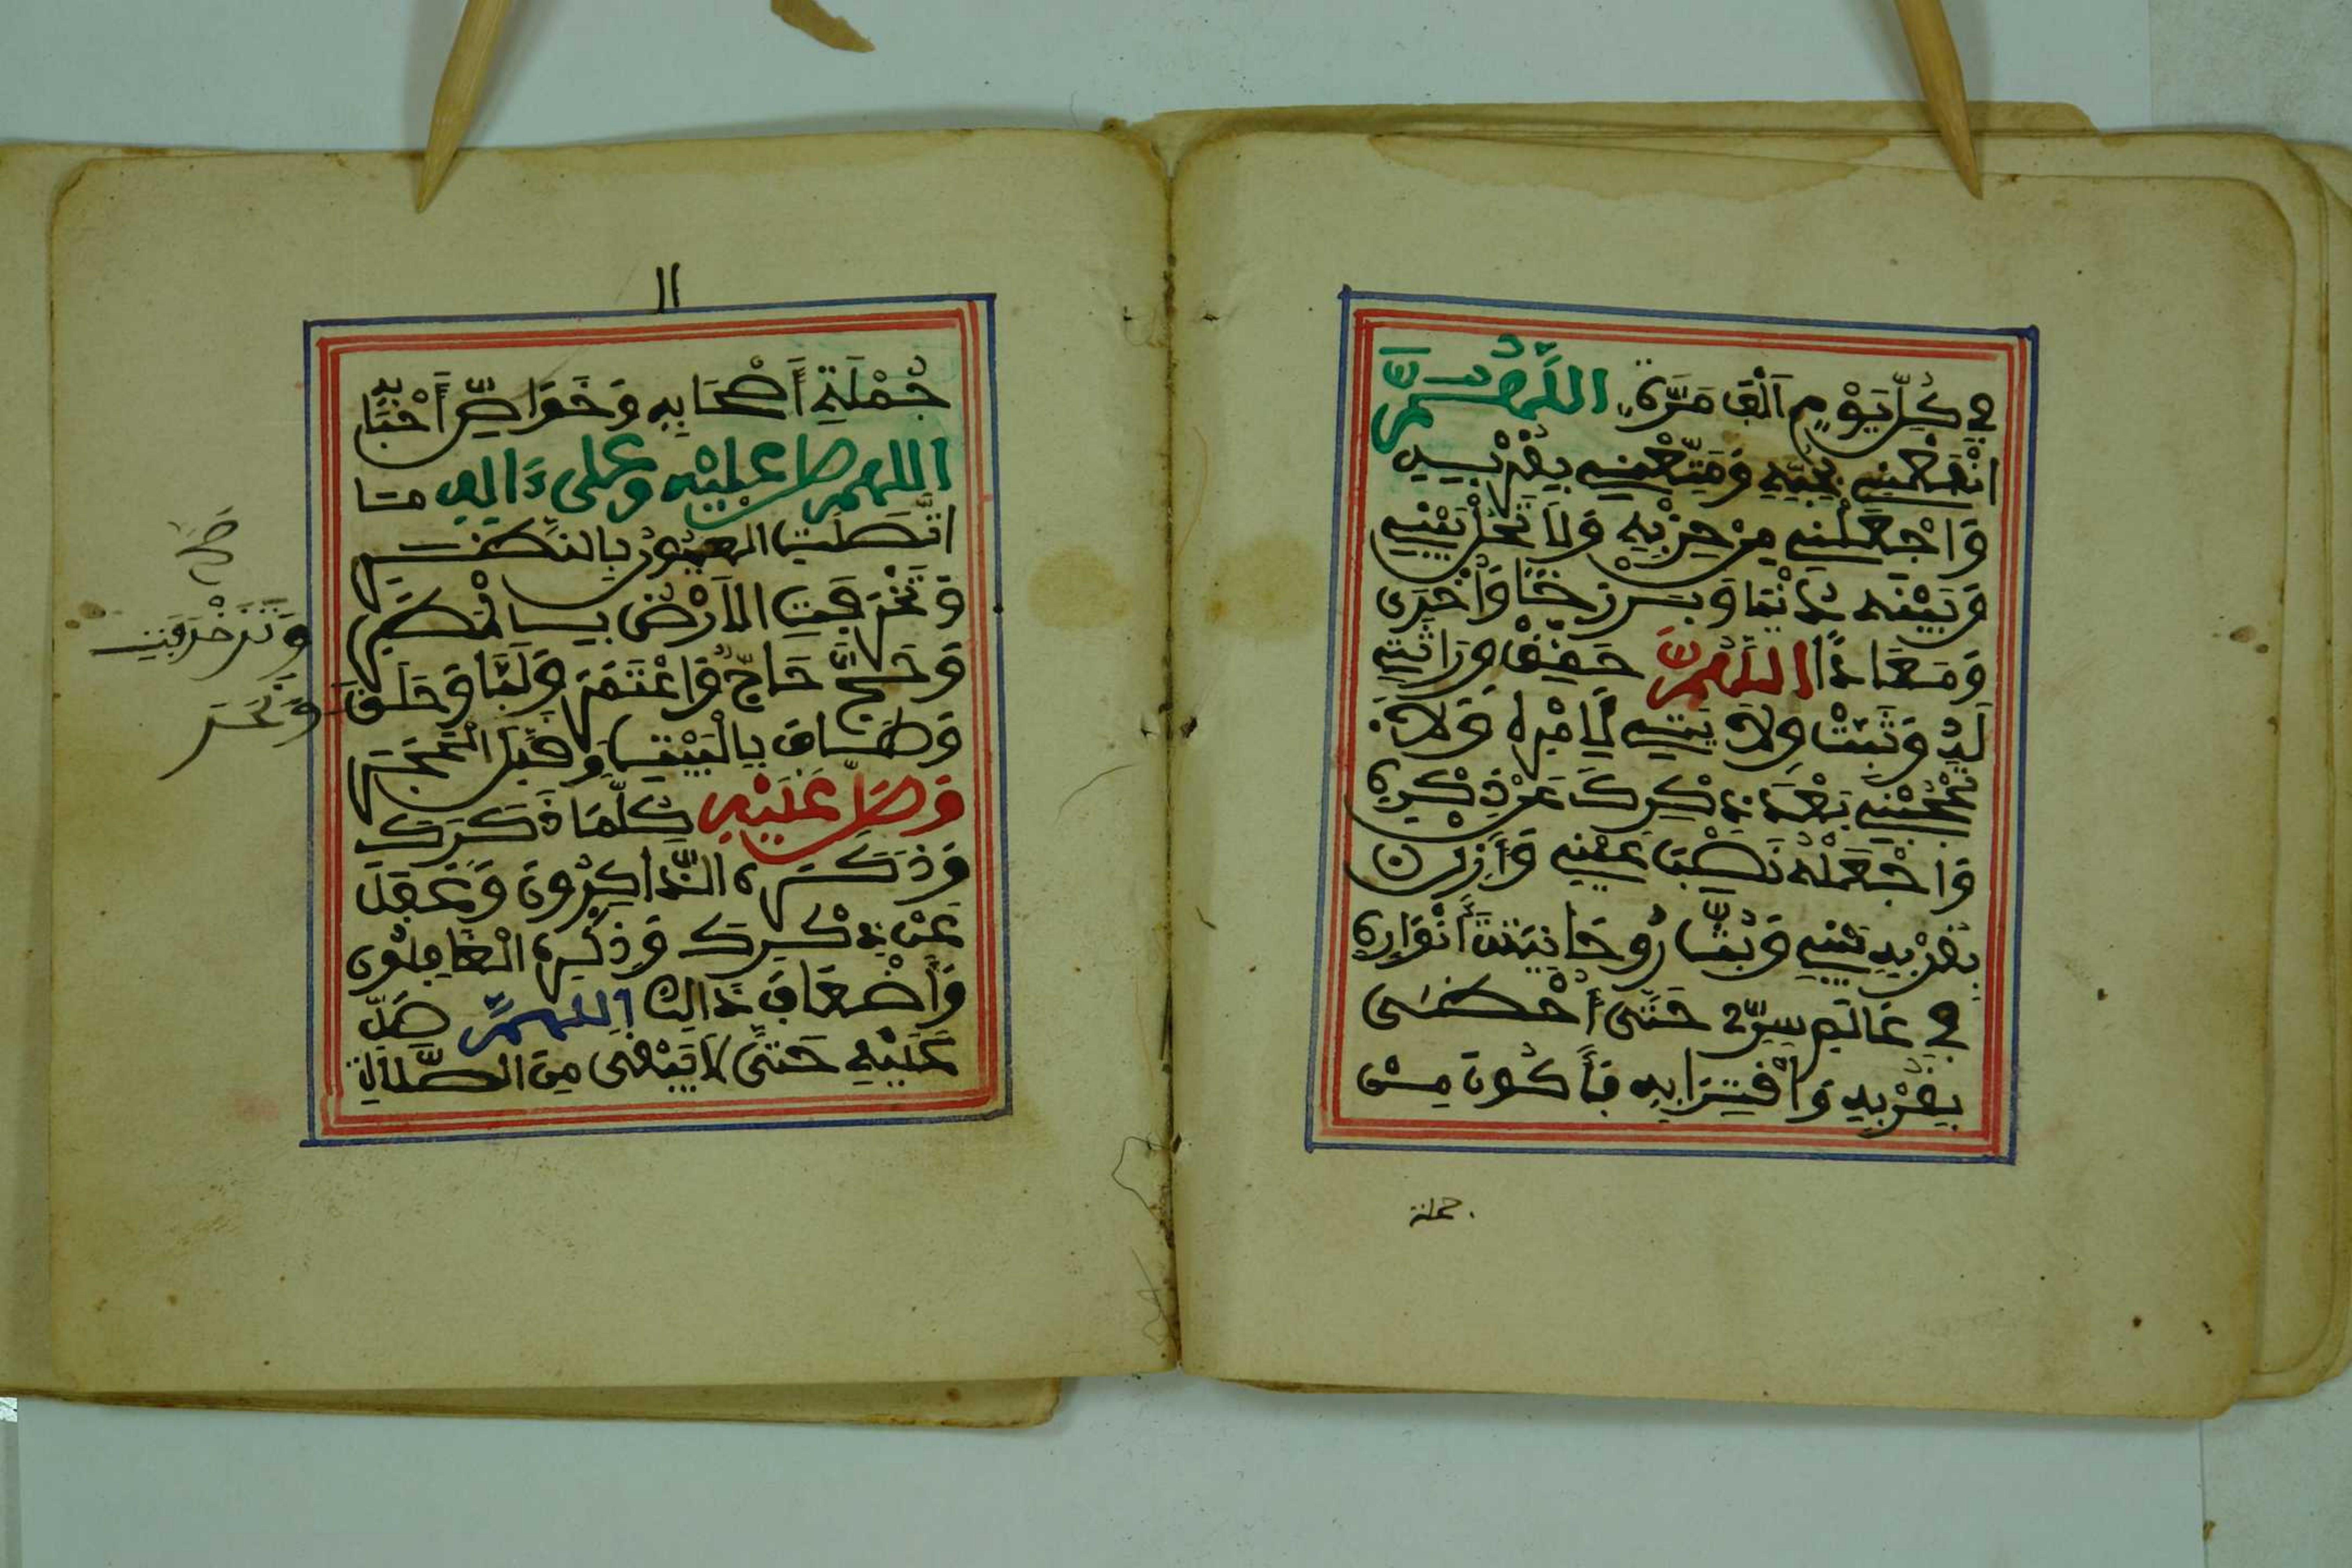 في كُلِّ يَوْمٍ أَلْفَ مَرَّةٍ، اللَّهُمَّ
انْفَعْنِي بِحُبِّهِ وَمَتِّعْنِي بِقُرْبِهِ
وَاجْعَلْنِي مِنْ حِزْبِهِ وَلَا تَحُلْ بَيْنِي
وَبَيْنَهُ دُنْيَا وَبَرْزَخًا وَأُخْرَى
وَمَعَادًا اللَّهُمَّ حَقِّقْ وِرَاثَتِي
لَهُ وَثَبِّتْ وِلَايَتِي لِأَمْرِهِ وَلَا
تَحْجُبْنِي بَعْدَ ذِكْرِكَ عَنْ ذِكْرِهِ
وَاجْعَلْهُ نَصْبَ عَيْنِي وَأَزِلْ
بِقُرْبِهِ بَيْنِي وَبُثَّ رُوحَانِيَّتَ أَنْوَارِهِ
في عَالَمِ سِرِّي حَتَّى أَحْظَى
بِقُرْبِهِ وَاقْتِرَابِهِ فَأَكُونَ مِنْ
جملة
١١
جُمْلَةِ أَصْحَابِهِ وَخَوَاصِّ أَحْبَابِهِ
اللهم صل عليه وعلى ءاله ما
اتَّصَلَتِ الْعُيُونُ بِالنَّظَرِ
وَتَزَخْرَفَتِ الْأَرْضُ بِالْمَطَرِ
وَحَجَّ حَاجٌّ وَاعْتَمَرَ وَلَبَّا وَحَلَقَ
وَطَافَ بِالْبَيْتِ وَقَبَّلَ الْحَجَرَ
وَصَلِّ عَلَيْهِ كُلَّمَا ذَكَرَكَ
وَذَكَرَهُ الذَّاكِرُونَ وَغَفَلَ
عَنْ ذِكْرِكَ وَذِكْرِهِ الْغَافِلُونَ
وَأَضْعَافَ ذَالِكَ اللهمَّ صَلِّ
عَلَيْهِ حَتَّى لَا يَبْقَى مِنَ الصَّلَاةِ
صح
وَتَزَخْرَفَتِ
وَنَحَرَ